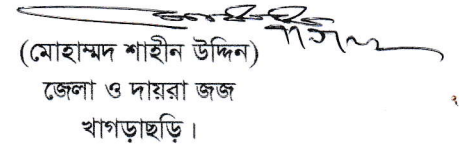 (মোহাম্মদ শাহীন উদ্দিন)
জেলা ও দায়রা জজ
খাগড়াছড়ি।